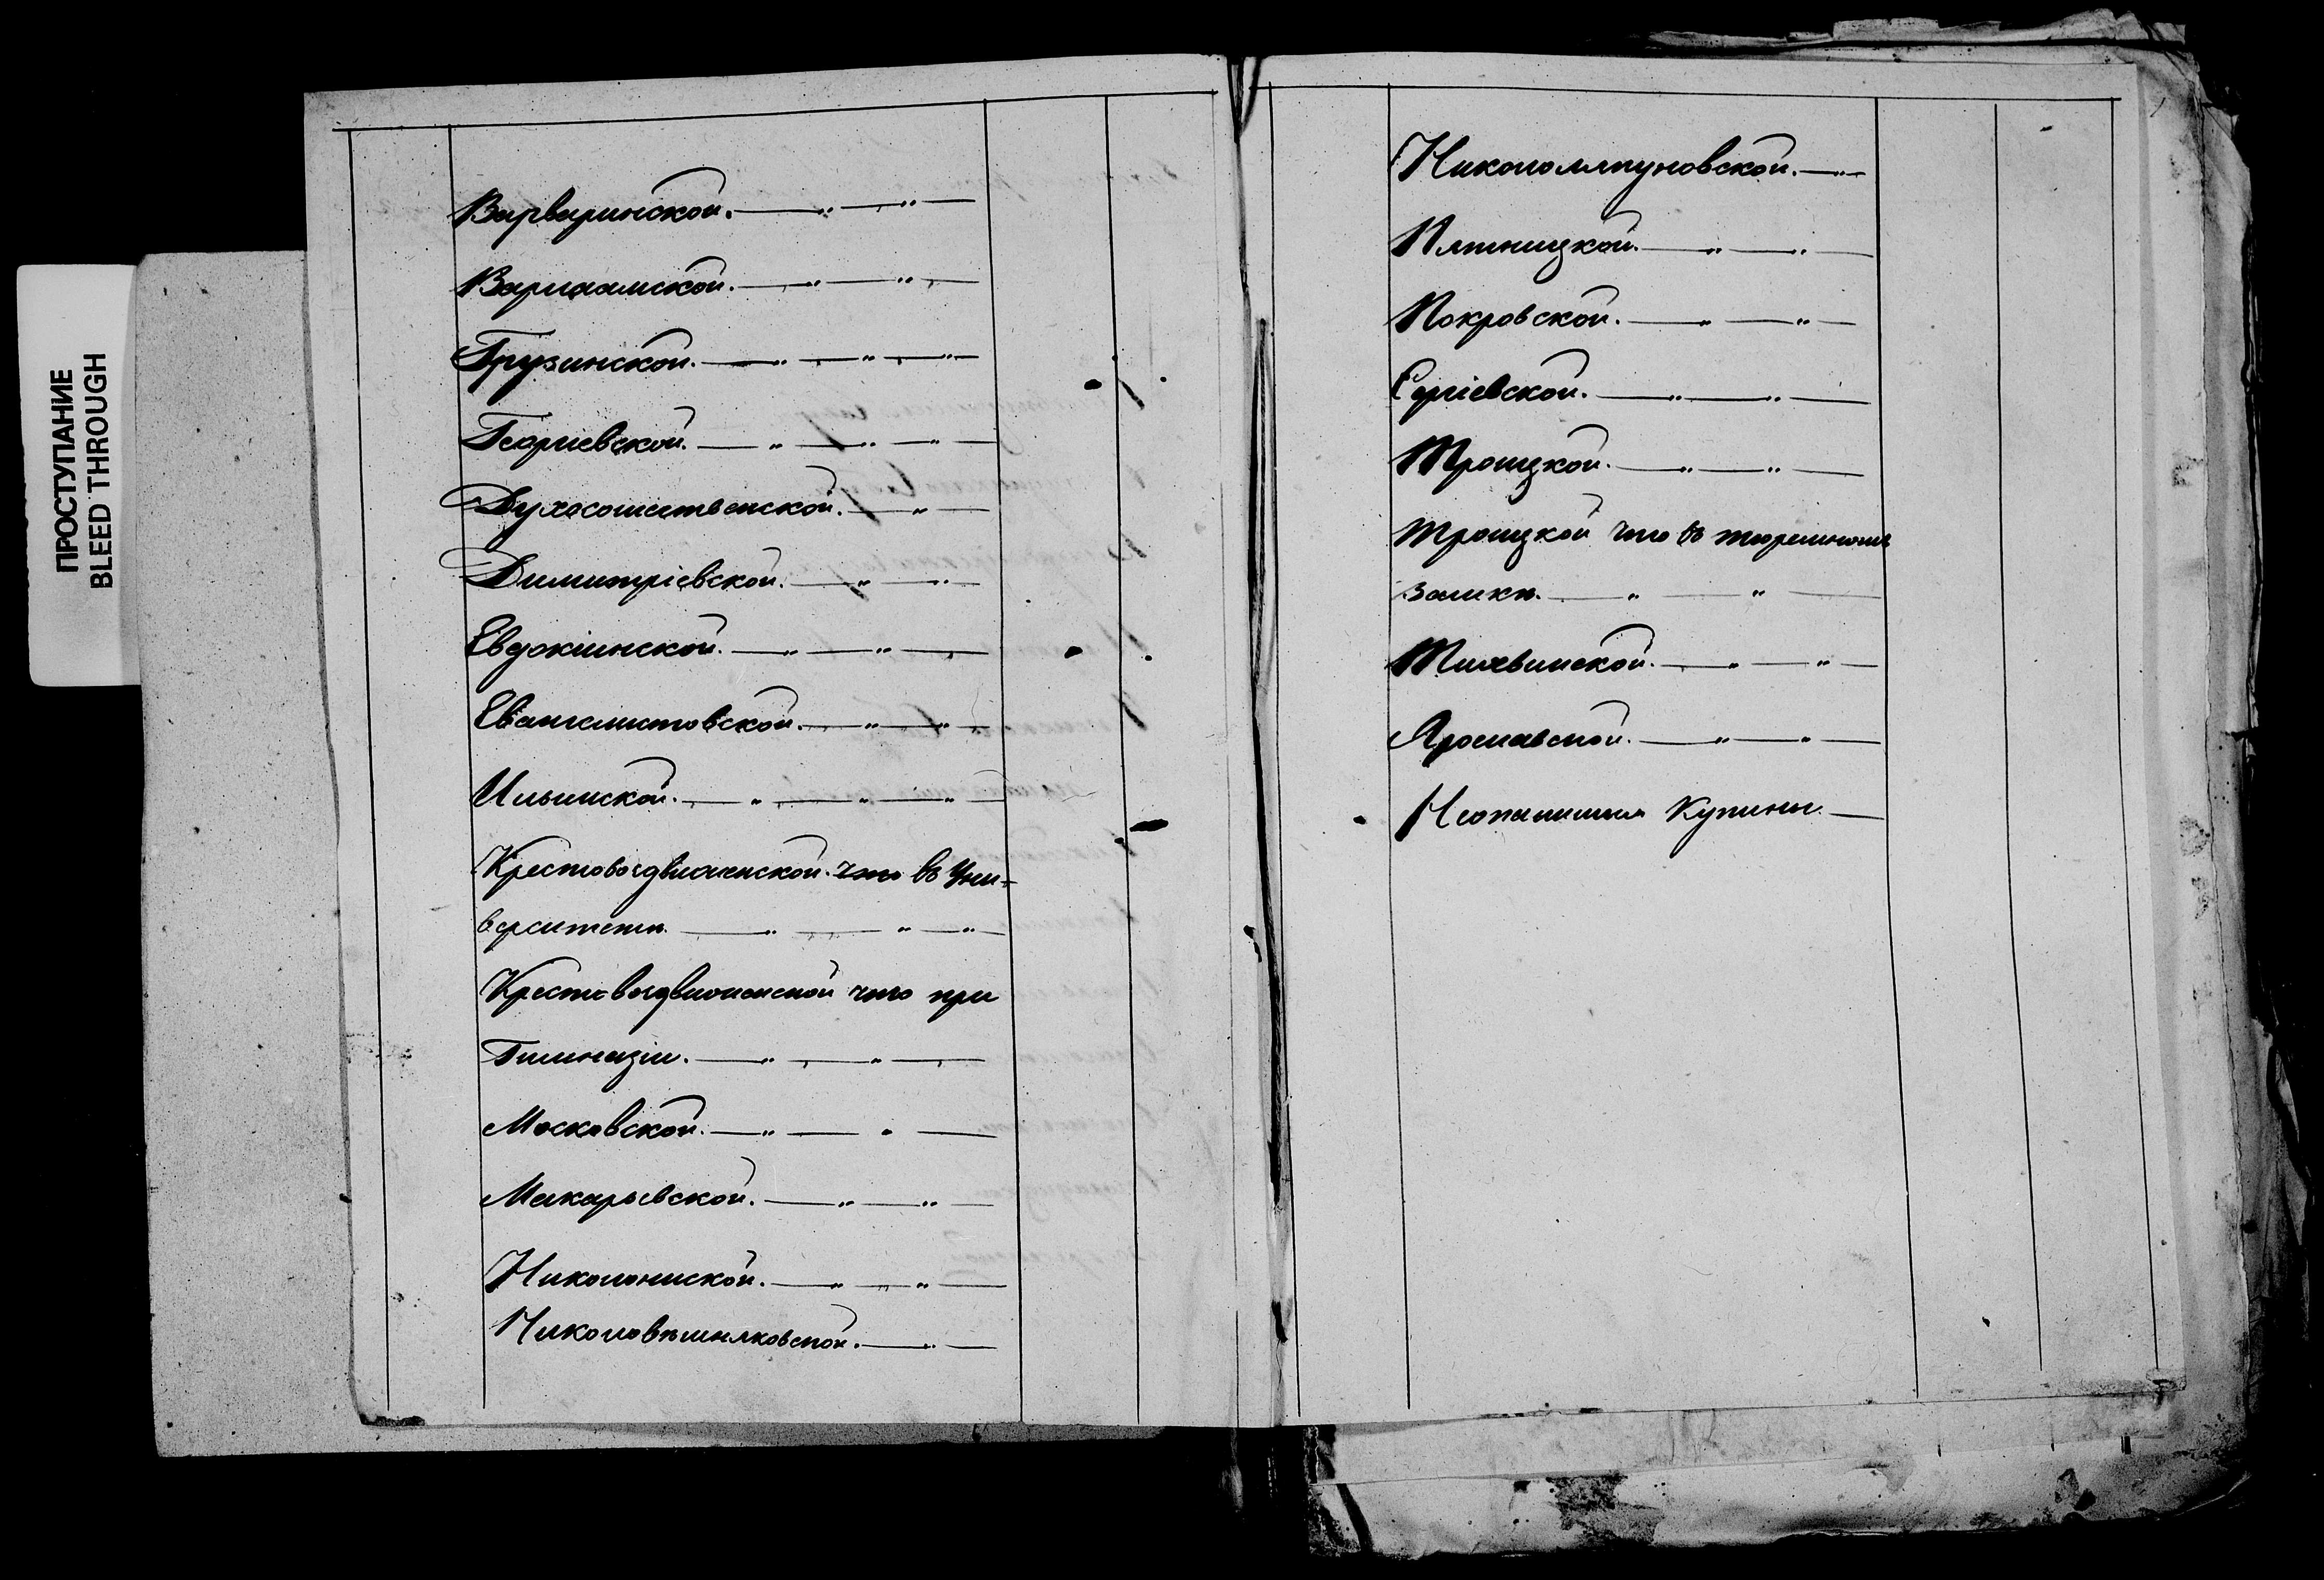 ПРОСТУПАНИЕ
BLEED THROUGH
Варваринской.
Варлаамской.
Грузинской.
Георгиевской.
Духосошественской.
Димитріевской.
Евдокіинской.
Евангелистовской.
Ильинской.
Крестовоздвиженской что въ Уни-
верситетѣ.
Крестовоздвиженской что при
Гимназіи.
Московской.
Макарьевской.
Николонисской.
Николовѣшняковской.
Никололяпуновской.
Пятницкой.
Покровской.
Сергіевской.
Троицкой.
Троицкой что въ тюремномъ
замкѣ.
Тихвинской.
Ярославской.
Неопалимыя Купины.